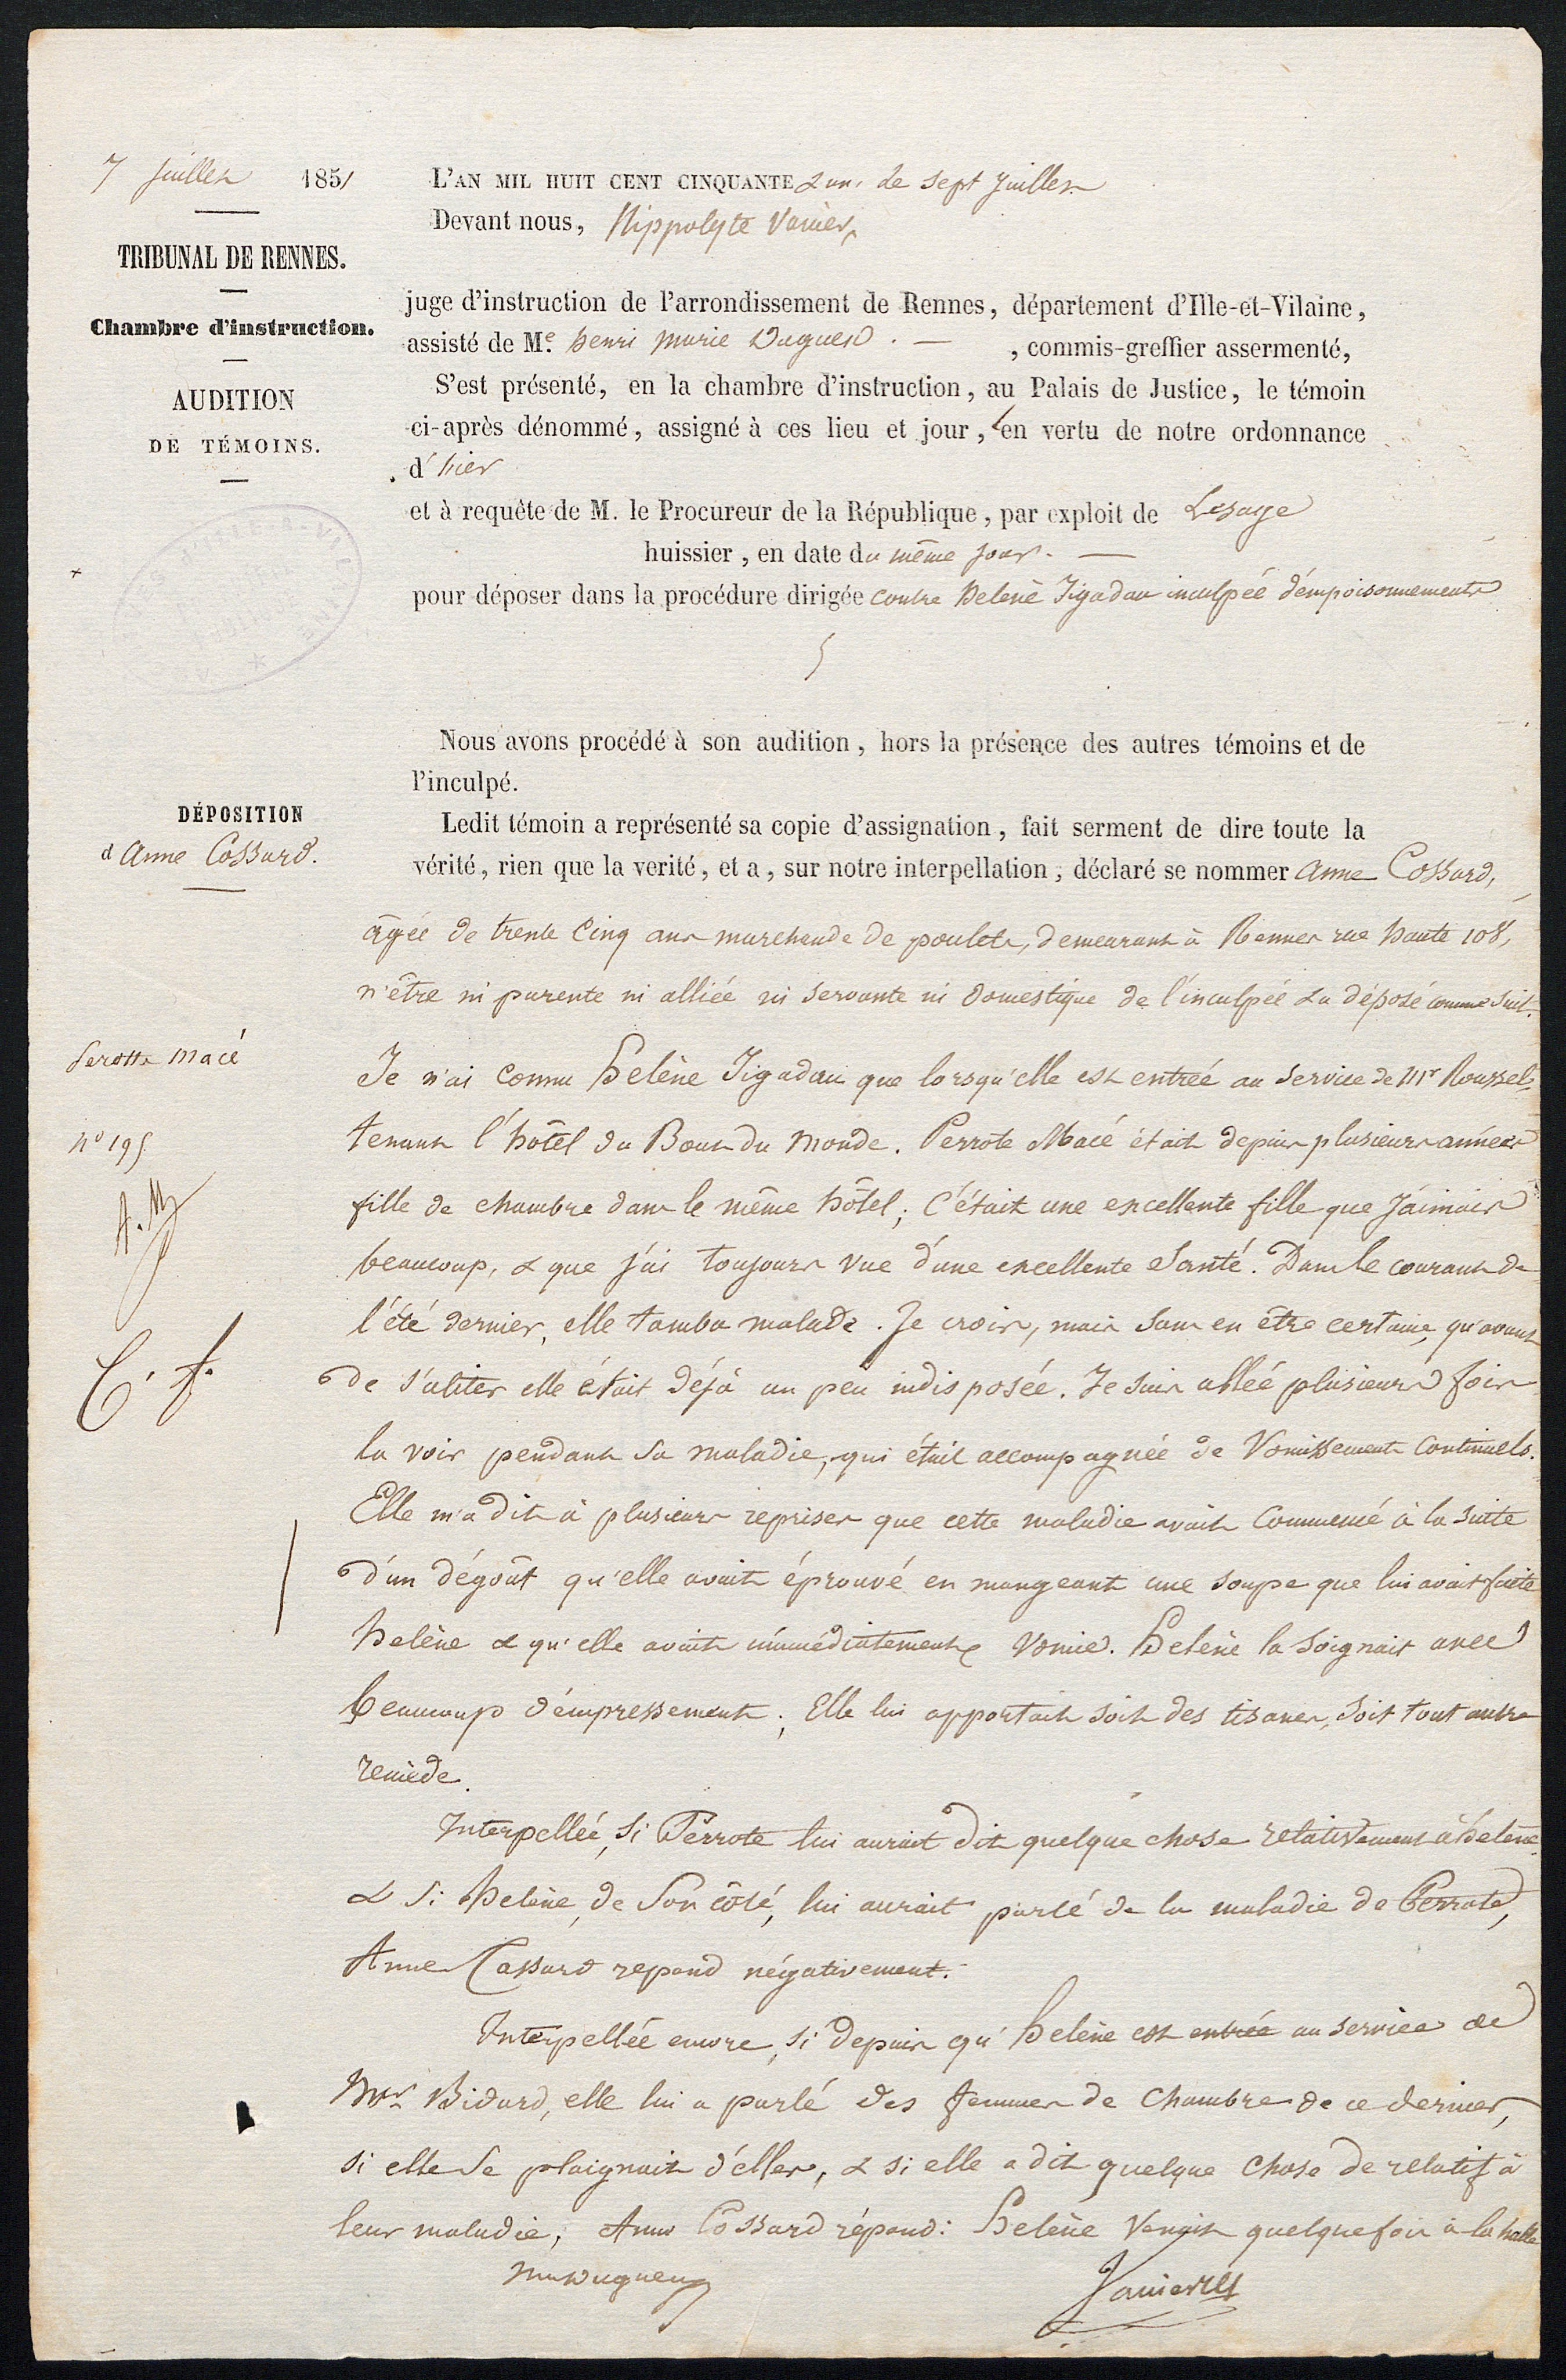 7 juillet 1851
TRIBUNAL DE RENNES.
Chambre d'instruction.
AUDITION
DE TÉMOINS.
L'AN MIL HUIT CENT CINQUANTE & un. Le sept juillet
Devant nous, Hippolyte Vanier,
juge d'instruction de l'arrondissement de Rennes, département d'Ille-et-Vilaine,
assisté de Me. henri marie Duguen. — , commis-greffier assermenté,
S'est présenté, en la chambre d'instruction, au Palais de Justice, le témoin
ci-après dénommé, assigné à ces lieu et jour, en vertu de notre ordonnance
d'hier
et à requête de M. le Procureur de la République, par exploit de Lesage
huissier, en date du même jour. —
pour déposer dans la procédure dirigée contre Helène Jigadau inculpée d'empoisonnements
Nous avons procédé à son audition, hors la présence des autres témoins et de
l'inculpé.
DÉPOSITION
d'Anne Cossard.
Ledit témoin a représenté sa copie d'assignation, fait serment de dire toute la
vérité, rien que la verité, et a, sur notre interpellation, déclaré se nommer Anne Cossard,
âgée de trente cinq ans marchande de poulets, demeurant à Rennes rue haute 108,
n'être ni parente ni alliée ni servante ni domestique de l'inculpée & a déposé comme suit.
Perotte Macé
Je n'ai connu Helène Jigadau que lorsqu'elle est entrée au service de Mr Roussel,
n° 195
tenant l'hôtel du Bout du monde. Perrote Macé était depuis plusieurs années
fille de chambre dans le même hôtel; c'était une excellente fille que j'aimais
beaucoup, & que j'ai toujours vue d'une excellente santé. Dans le courant de
l'été dernier, elle tomba malade. Je crois, mais sans en être certaine, qu'avant
de s'aliter elle était déjà un peu indisposée. Je suis allée plusieurs fois
la voir pendant sa maladie, qui était accompagnée de vomissements continuels.
Elle m'a dit à plusieurs reprises que cette maladie avait commencé à la suite
d'un dégoût qu'elle avait éprouvé en mangeant une soupe que lui avait faite
helène & qu'elle avait immédiatement vomie. Helène la soignait avec
beaucoup d'empressement; Elle lui apportait soit des tisanes, soit tout autre
remède.
Interpellée, si Perrote lui aurait dit quelque chose relativement à helène
& si helène, de son côté, lui aurait parlé de la maladie de Perrote,
Anne Cossard repond négativement.
Interpellée encore, si depuis qu'helène est entrée au service de
Mr Bidard, elle lui a parlé des femmes de chambre de ce dernier,
si elle se plaignait d'elles, & si elle a dit quelque chose de relatif à
leur maladie; Anne Cossard répond: Helène venait quelquefois à la halle